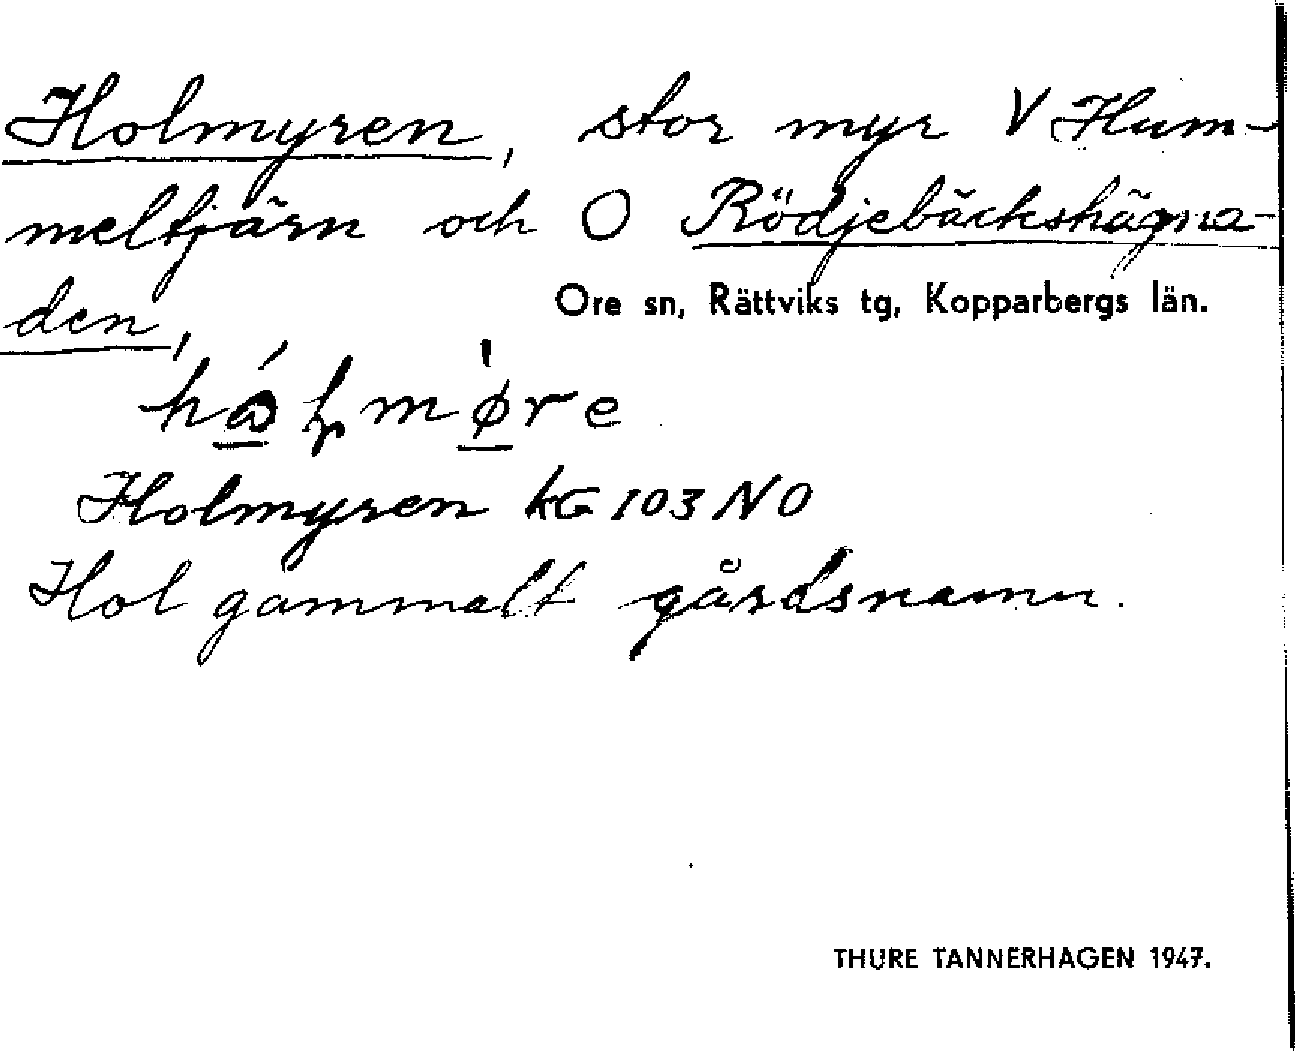 Holmyren, stor myr V Hum-
meltjärn och O Rödjebäckshägna-
den,
Ore sn, Rättviks tg, Kopparbergs län.
Holmyren kG 103 NO
Hol gammalt gårdsnamn.
THURE TANNERHAGEN 1947.